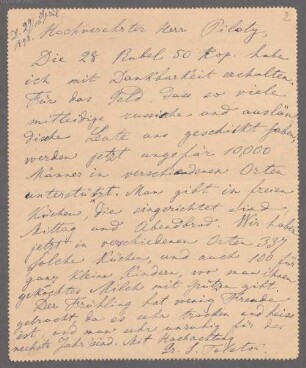 D. 29 April
1898.
2
Hochverehrter Herr Piloty,
Die 28 Rubel 50 Kop. habe
ich mit Dankbarkeit erhalten.
Für das Geld, dass so viele
mitleidige russische und auslän
dische Leute uns geschickt haben,
werden jetzt ungefär 10,000
Männer in verschiedenen Orten
unterstützt. Man gibt in freien
Küchen, die eingerichtet sind
Mittag und Abendbrod. Wir haben
jetzt in verschiedenen Orten 337
solche Küchen, und auch 100 für
ganz kleine Kinder, wo man ihnen
gekochtes Milch mit Grütze gibt.
Der Frühling hat wenig Freude
gebracht da es sehr trocken und heiss
ist, und man sehr unruhig für das
nechste Jahr sind. Mit Hochachtung
Tolstoi